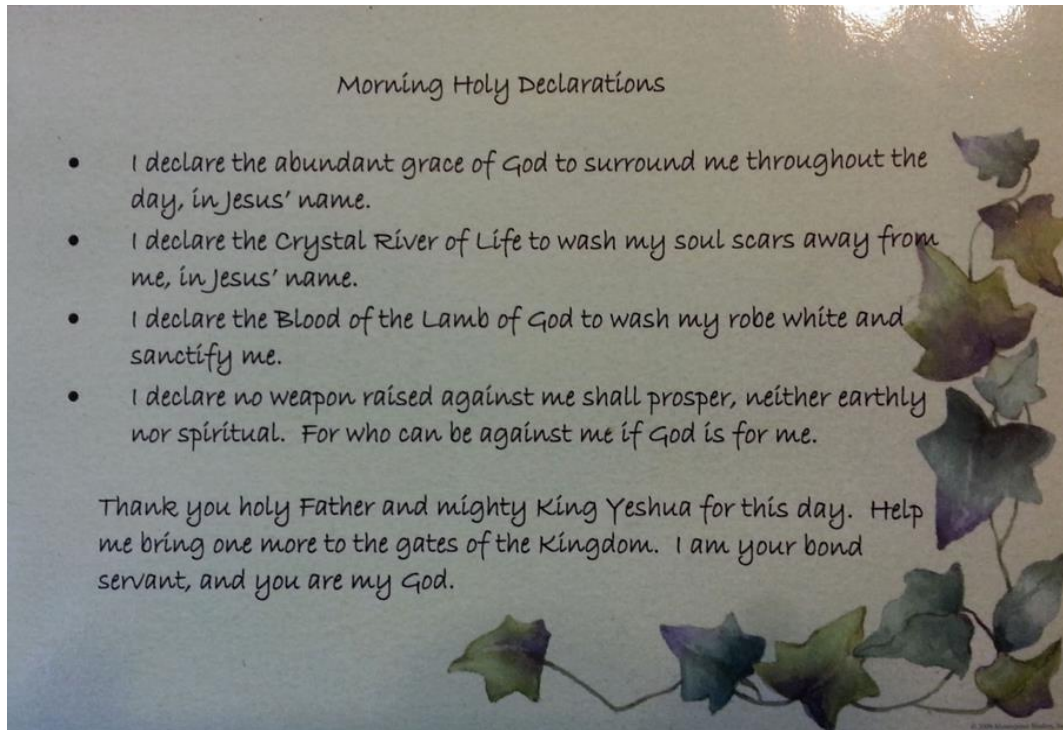 Morning Holy Declarations
• I declare the abundant grace of God to surround me throughout the
day, in Jesus' name.
• I declare the Crystal River of Life to wash my soul scars away from
me, in Jesus' name.
• I declare the Blood of the Lamb of God to wash my robe white and
sanctify me.
• I declare no weapon raised against me shall prosper, neither earthly
nor spiritual.  For who can be against me if God is for me.
Thank you holy Father and mighty King Yeshua for this day.  Help
me bring one more to the gates of the Kingdom.  I am your bond
servant, and you are my God.